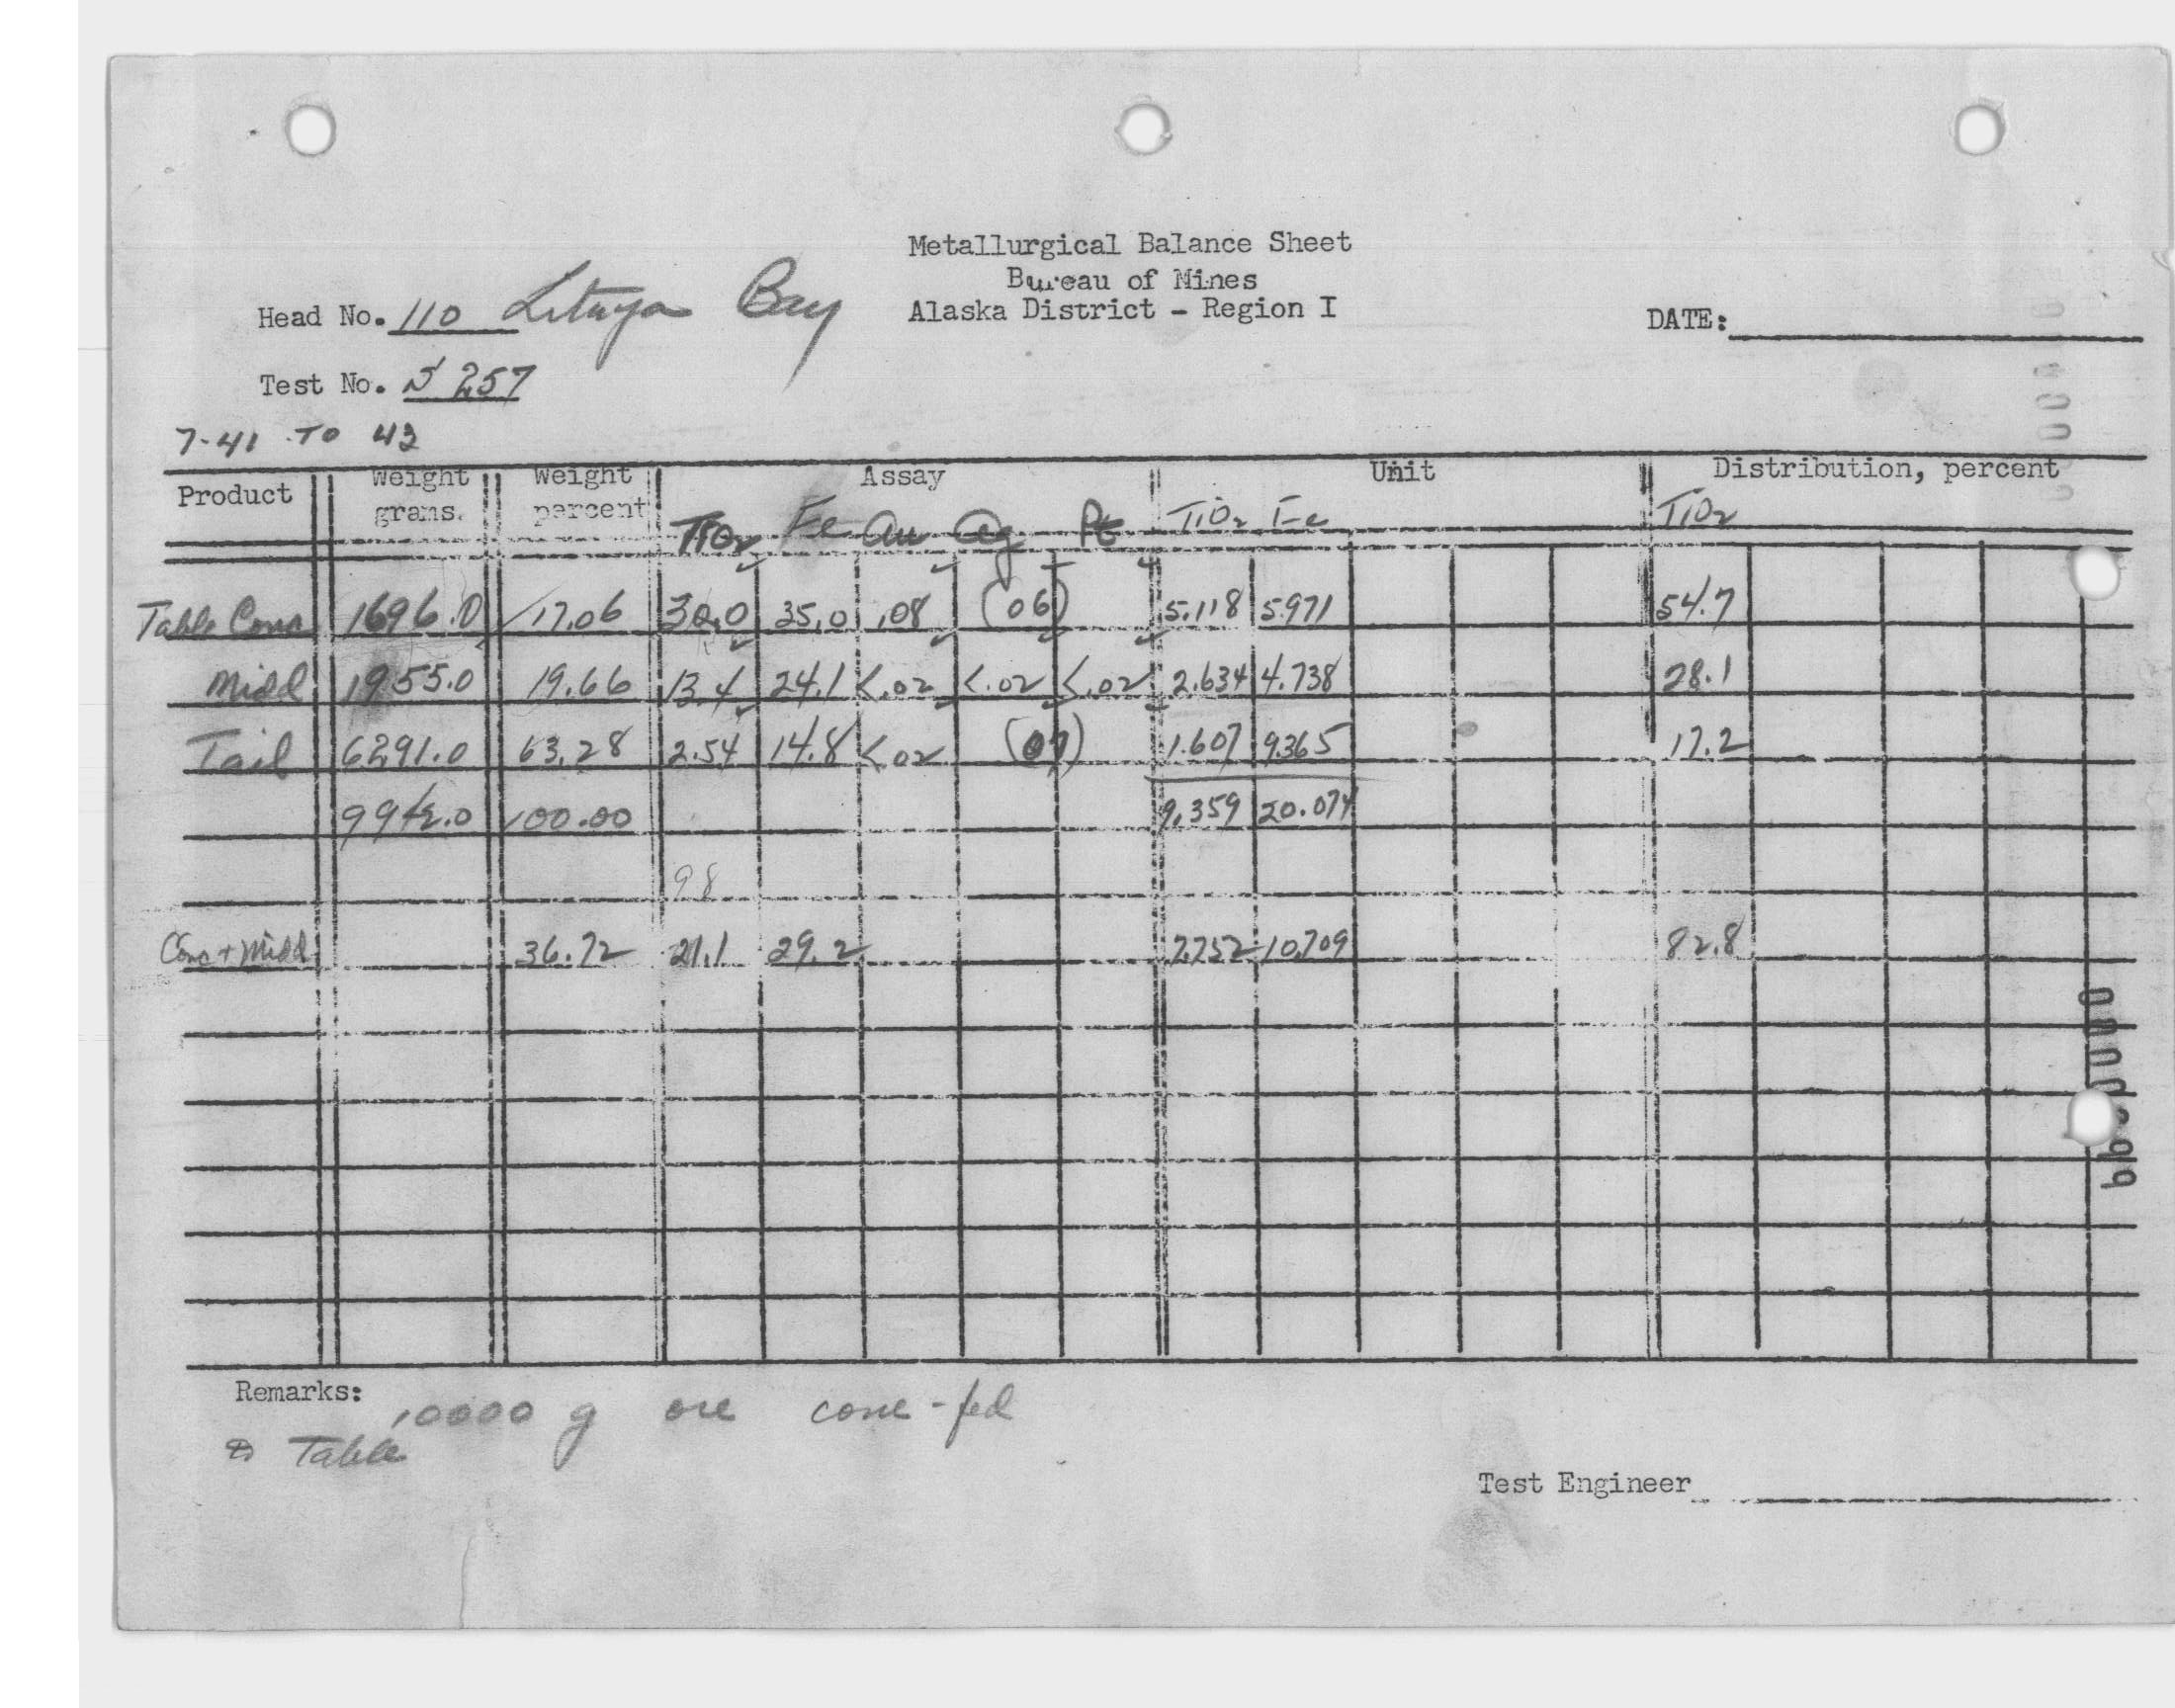 Metallurgical Balance Sheet
Bureau of Mines
Alaska District - Region I
Head No. 110 Lituya Bay
DATE:
Test No. S 257
7-41 TO 43
Product Weight grams. Weight percent Assay Unit Distribution, percent
TiO2 Fe Au Ag Pt TiO2 Fe TiO2
Table Conc 1696.0 17.06 30.0 35.0 .08 (06) 5.118 5.971 54.7
Midd 1955.0 19.66 13.4 24.1 <.02 <.02 <.02 2.634 4.738 28.1
Tail 6291.0 63.28 2.54 14.8 <.02 (07) 1.607 9.365 17.2
9942.0 100.00 9.359 20.074
98
Conc + Midd 36.72 21.1 29.2 7.752 10.709 82.8
Remarks: 10000 g ore cone-fed
to Table
Test Engineer